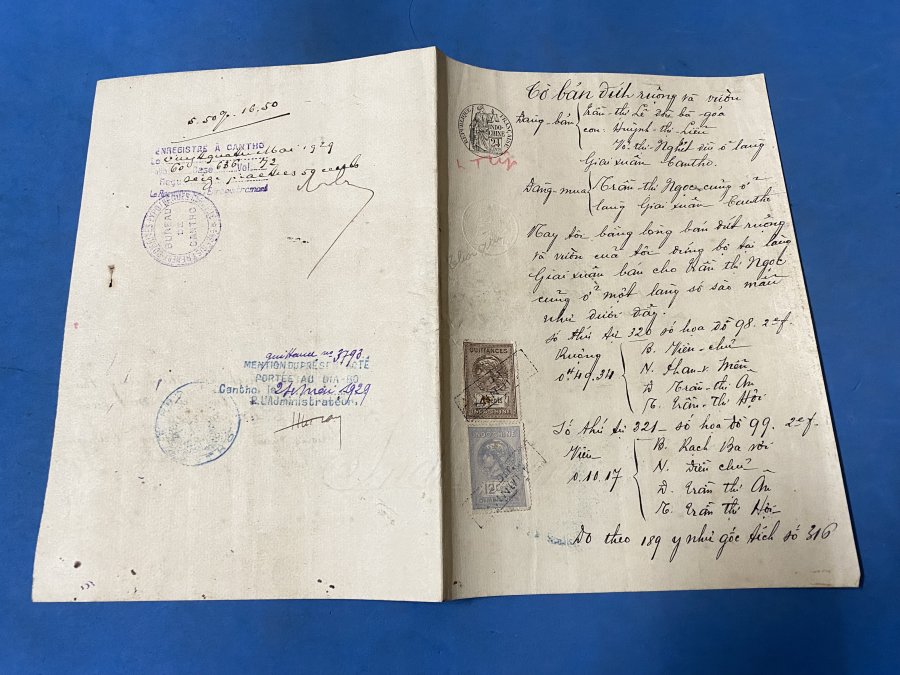 5.50 g. 16.50
ENREGISTRÉ À CANTHO
Le vingt quatre Mai 1929
Vol. 60 Case 636
Reçu
L'Enregistrement
BUREAU DE CANTHO
quittance no 3793
MENTION DU PRÉSENT ACTE
PORTÉE AU DIA-BO
Cantho, le 24 Mai 1929
L'Administrateur,
REPUBLIQUE FRANÇAISE
INDO-CHINE
24
Tờ bán đứt ruộng và vườn
Đứng bán Trần thị Lê đờn bà góa
con Huỳnh thị Liễu
Võ thị Nghét đều ở làng
Giai Xuân Cantho.
Đứng mua Trần thị Ngọc cũng ở
làng Giai Xuân Cantho
Nay tôi bằng lòng bán đứt ruộng
và vườn của tôi đứng bộ tại làng
Giai Xuân bán cho Trần thị Ngọc
cũng ở một làng số sào mẫu
như dưới đây.
Số thứ tự 320 số họa đồ 98. 2e f.
Ruộng
0h 49.34
B. Viên chủ
N. Phan v. Miễn
Đ. Trần thị Ân
T. Trần thị Hội
Số thứ tự 321 số họa đồ 99. 2e f.
Viên
0.10.17
B. Rạch Ba
N. Điền chủ
Đ. Trần thị Ân
T. Trần thị Hội
Đo theo 189 y như gốc tích số 316
QUITTANCES
INDOCHINE
INDOCHINE
12